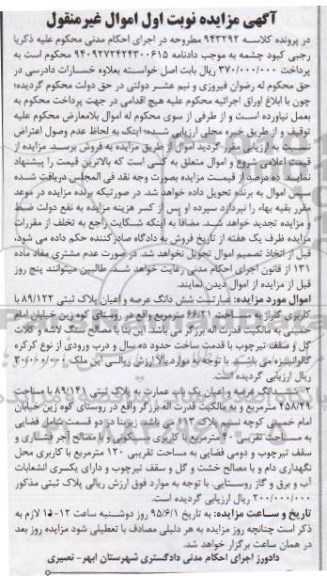 آگهی مزایده نوبت اول اموال غیرمنقول
در پرونده کلاسه ۹۴۳۲۹۲ مطروحه در اجرای احکام مدنی محکوم علیه ذکریا
رجبی کبود چشمه به موجب دادنامه ۹۴۰۹۲۷۲۴۲۴۳۰۰۶۱۵ محکوم است به
پرداخت ۳۷۰/۰۰۰/۰۰۰ ریال بابت اصل خواسته بعلاوه خسارات دادرسی در
حق محکوم له رضوان فیروزی و نیم عشر دولتی در حق دولت محکوم گردیده؛
چون با ابلاغ اوراق اجرائیه محکوم علیه هیچ اقدامی در جهت پرداخت محکوم به
بعمل نیاورده است و از طرفی از سوی محکوم له اموال بلامعارض محکوم علیه
توقیف و از طریق خبره محلی ارزیابی شده؛ اینک به لحاظ عدم وصول اعتراض
نسبت به ارزیابی مقرر گردید اموال از طریق مزایده به فروش برسد. مزایده از
قیمت اعلامی شروع و اموال متعلق به کسی است که بالاترین قیمت را پیشنهاد
نماید. ده درصد از قیمت مزایده بصورت وجه نقد فی المجلس دریافت شده
سپس اموال به برنده تحویل داده خواهد شد. در صورتیکه برنده مزایده در موعد
مقرر بقیه بهاء را نپردازد سپرده او پس از کسر هزینه مزایده به نفع دولت ضبط
و مزایده تجدید خواهد شد. مضافا به اینکه شکایت راجع به تخلف از مقررات
مزایده ظرف یک هفته از تاریخ فروش به دادگاه صادرکننده حکم داده می شود،
قبل از اتخاذ تصمیم اموال تحویل نخواهد شد. در صورت عدم مشتری مفاد ماده
۱۳۱ از قانون اجرای احکام مدنی رعایت خواهد شد. طالبین میتوانند پنج روز
قبل از مزایده از اموال دیدن نمایند.
اموال مورد مزایده: عبارتست شش دانگ عرصه و اعیان پلاک ثبتی ۸۹/۱۲۲ با
کاربری گاراژ به مساحت ۶۶/۲۱ مترمربع واقع در روستای کوه زین خیابان امام
خمینی به مالکیت قدرت اله بزرگر می باشد این بنا با مصالح سنگ لاشه و کلات
گل و سقف تیرچوب با قدمت ساخت حدود ده سال و درب ورودی از نوع کرکره
گالوانیزه می باشد. با توجه به موارد بالا ارزش ریالی این ملک
ریال ارزیابی گردیده است.
۲- ششدانگ عرصه و اعیان یک باب عمارت به پلاک ثبتی ۸۹/۱۴۱ با مساحت
۴۵۸/۴۹ مترمربع و به مالکیت قدرت اله برزگر واقع در روستای کوه زین خیابان
امام خمینی کوچه نسترن پلاک ۱۳ به مساحت زیربنا در دو قسمت شامل فضایی
به مساحت تقریبی ۴۰ مترمربع با کاربری مسکونی و با مصالح آجر فشاری و
سقف تیرچوب و دومی فضایی به مساحت تقریبی ۱۲۰ مترمربع با کاربری محل
نگهداری دام و با مصالح خشت و گل و سقف تیرچوب و دارای یکسری انشعابات
آب و برق و گاز روستایی. با توجه به موارد فوق ارزش ریالی پلاک ثبتی مذکور
۲۰۰/۰۰۰/۰۰۰ ریال ارزیابی گردیده است.
تاریخ و ساعت مزایده: به تاریخ ۹۵/۶/۱ روز دوشنبه ساعت ۱۲-۱۵ لازم به
ذکر است چنانچه روز مزایده به هر دلیلی مصادف با تعطیلی شود مزایده روز بعد
در همان ساعت برگزار خواهد شد.
دادورز اجرای احکام مدنی دادگستری شهرستان ابهر- نصیری